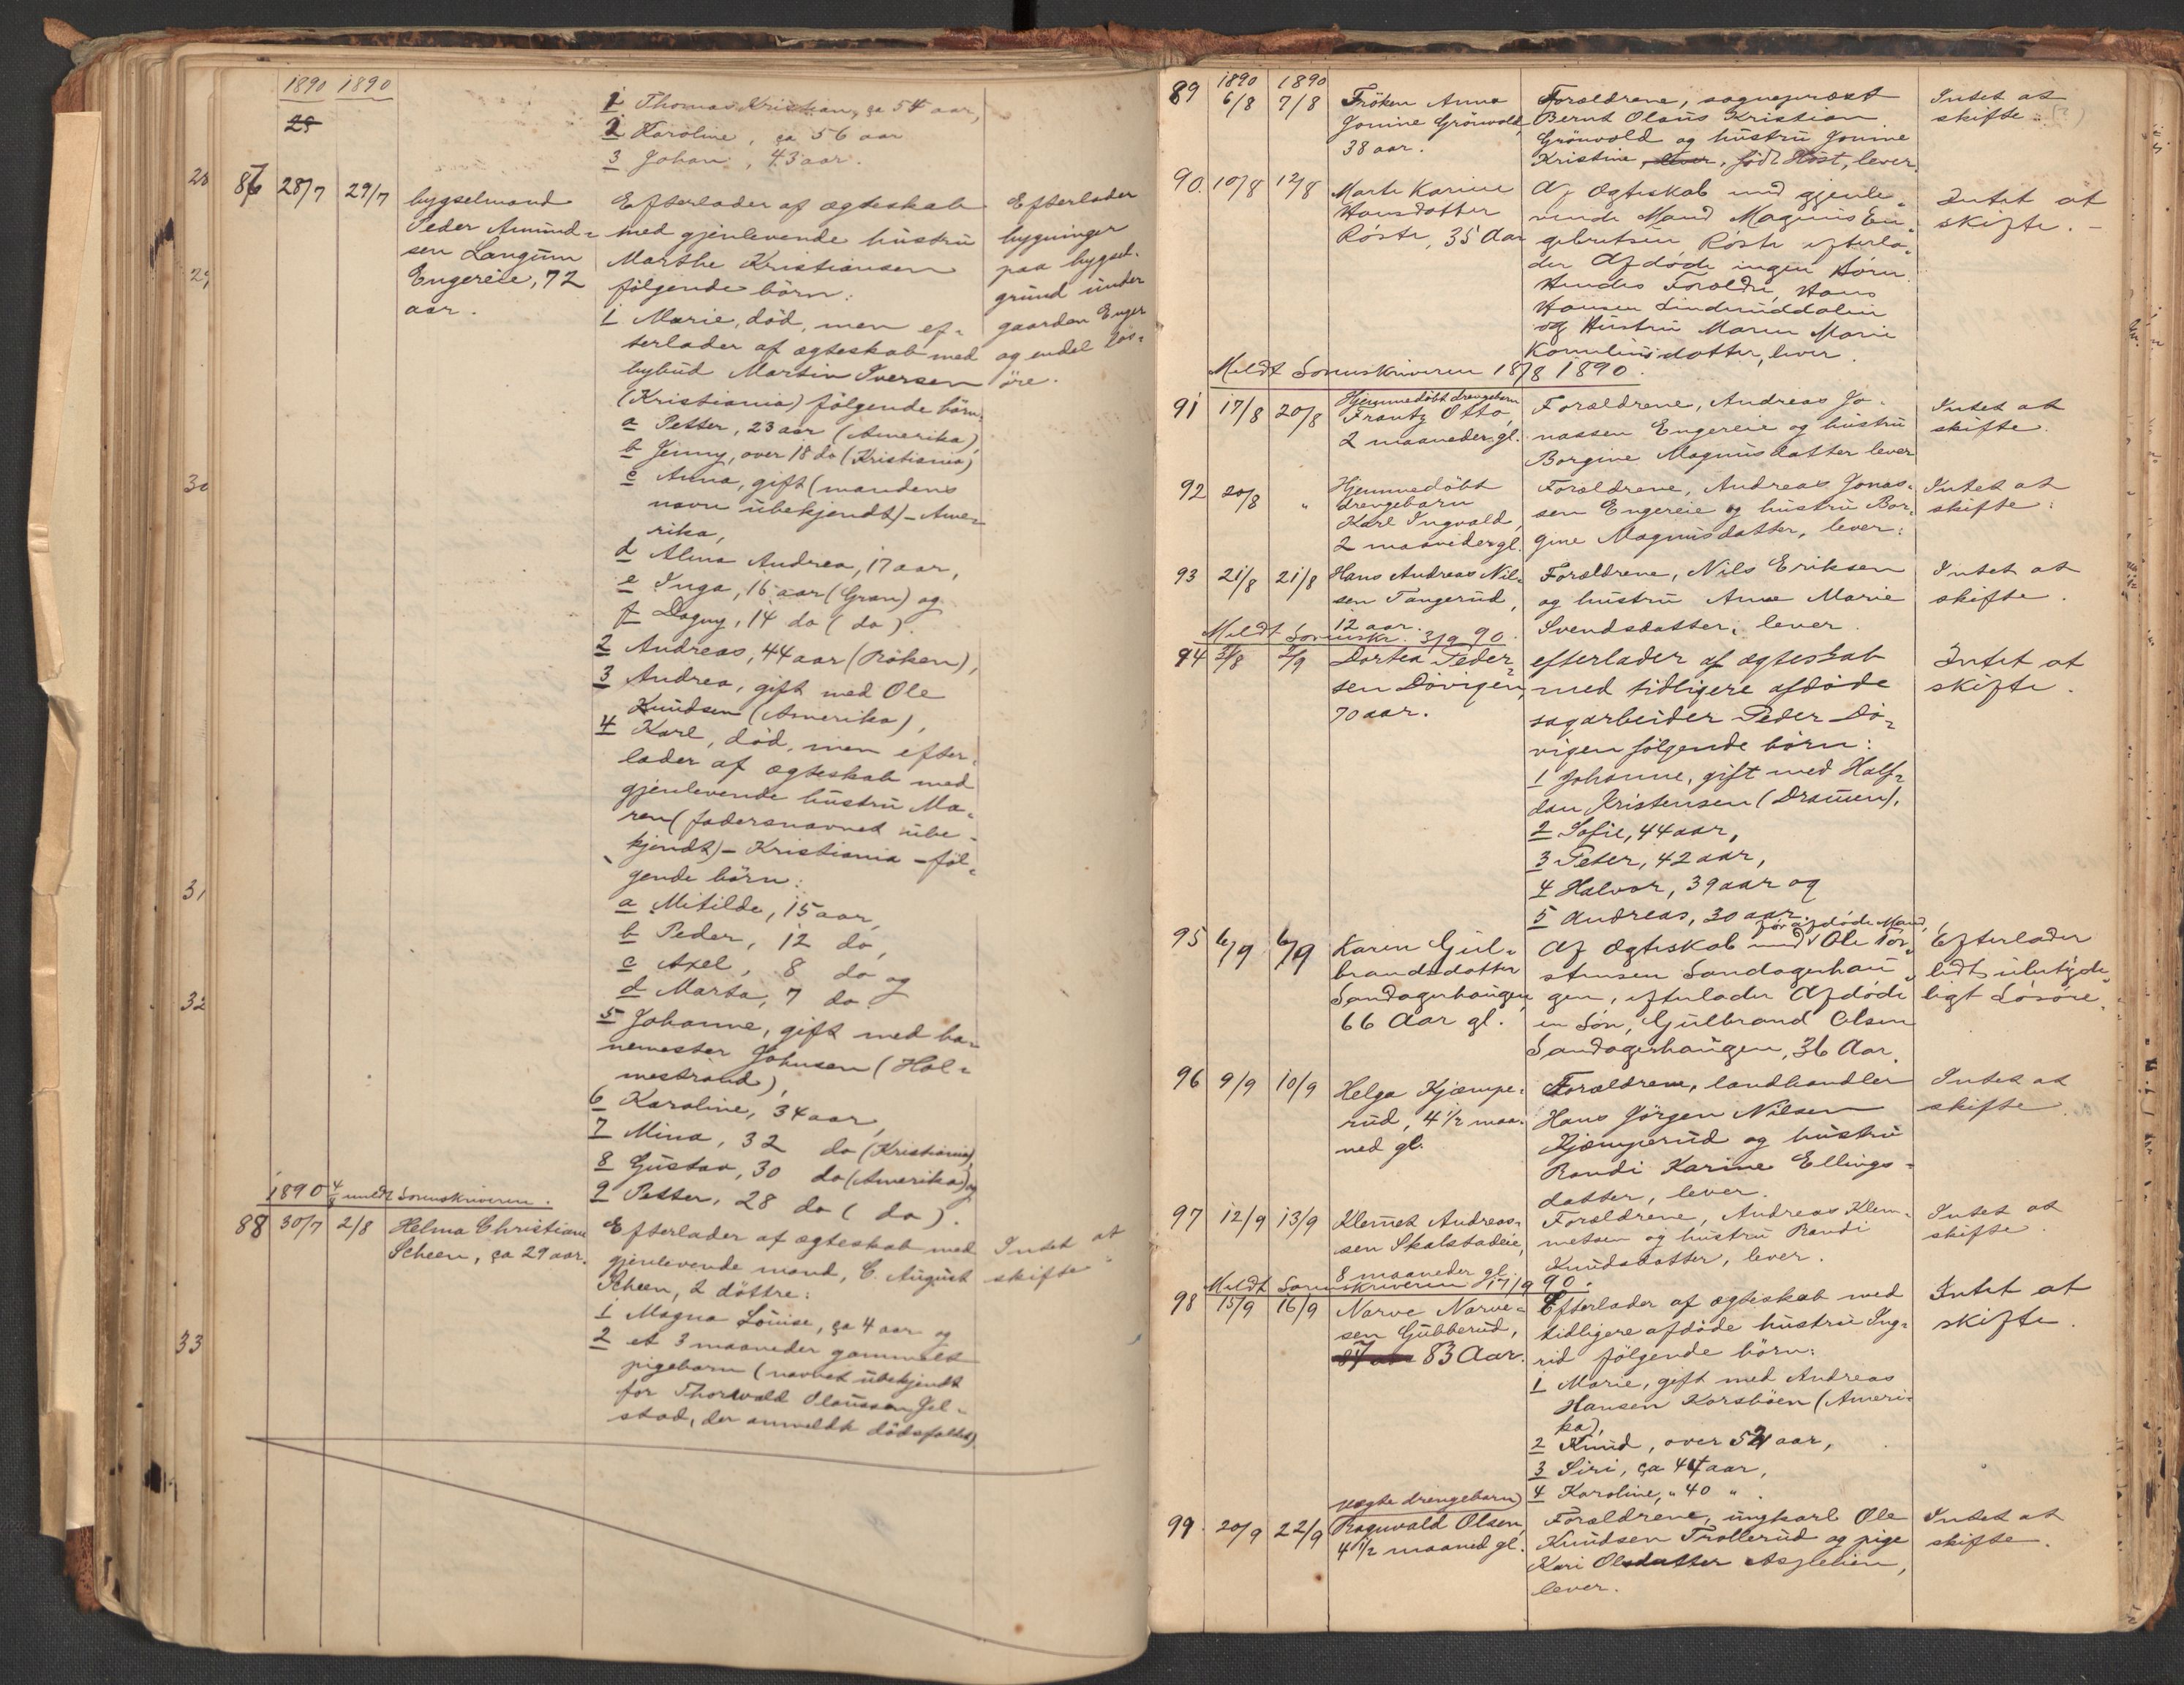 1890 1890
1 Thomas Kristian, ca 54 aar,
2 Karoline, ca 56 aar
3 Johan, 43 aar.
87 28/7 29/7
bygselmand
Peder Amund-
sen Langum
Engereie, 72
aar.
Efterlader af ægteskab
med gjenlevende hustru
Marthe Kristiansen
følgende børn:
1 Marie, død, men ef-
terlader af ægteskab med
bybud Martin Iversen
(Kristiania) følgende børn:
a Petter, 23 aar (Amerika),
b Jenny, over 18 do (Kristiania)
c Anna, gift (mandens
navn ubekjendt) - Ame-
rika,
d Alma Andrea, 17 aar,
e Inga, 16 aar (Gran) og
f Dagny, 14 do (do).
2 Andreas, 44 aar (Røken),
3 Andrea, gift med Ole
Knudsen (Amerika),
4 Karl, død, men efter-
lader af ægteskab med
gjenlevende hustru Ma-
ren (fadersnavnet ube-
kjendt) - Kristiania - føl-
gende børn:
a Mitilde, 15 aar,
b Peder, 12 do,
c Axel, 8 do og
d Marta, 7 do
5 Johanne, gift med ba-
nemester Johnsen (Hol-
mestrand),
6 Karoline, 34 aar,
7 Mina, 32 do (Kristiania),
8 Gustav, 30 do (Amerika) og
9 Petter, 28 do (do).
Efterlader
bygninger
paa bygsel-
grund under
gaarden Enger
og endel løs-
øre.
1890 4/8 meldt Sorenskriveren.
88 30/7 2/8
Helma Christiane
Scheen, ca 29 aar.
Efterlader af ægteskab med
gjenlevende mand, C. August
Scheen, 2 døttre:
1 Magna Louise, ca 4 aar og
2 et 3 maaneder gammelt
pigebarn (navnet ubekjendt
for Thorvald Olaussen Jel-
stad, der anmeldte dødsfaldet)
Intet at
skifte.
28
29
30
31
32
33
1890 1890
89 6/8 7/8
Frøken Anna
Jonine Grønvold,
38 aar.
Forældrene, sogneprest
Bernt Olaus Kristian
Grønvold og hustru Jonine
Kristine, født Høst, lever.
Intet at
skifte. (?)
90. 10/8 12/8
Marte Karine
Hansdatter
Røste, 35 Aar
Af Ægteskab med gjenle-
vende Mand Magnus En-
gebretsen Røste efterla-
der Afdøde ingen Børn.
Hendes Forældre, Hans
Hansen Linderuddalen
og Hustru Maren Marie
Korneliusdatter, lever.
Intet at
skifte. -
Meldt Sorenskriveren 18/8 1890.
91 17/8 20/8
Hjemmedøbt drengebarn
Frantz Otto,
2 maaneder gl.
Forældrene, Andreas Jo-
nassen Engereie og hustru
Borgine Magnusdatter lever
Intet at
skifte.
92 20/8 "
Hjemmedøbt
drengebarn
Karl Ingvald,
2 maaneder gl.
Forældrene, Andreas Jonas-
sen Engereie og hustru Bor-
gine Magnusdatter, lever.
Intet at
skifte.
93 21/8 21/8
Hans Andreas Nil-
sen Tangerud,
12 aar.
Forældrene, Nils Eriksen
og hustru Anne Marie
Svendsdatter, lever.
Intet at
skifte.
Meldt Sorenskr. 3/9 90.
94 31/8 2/9
Dortea Peder-
sen Døvigen,
70 aar.
efterlader af ægteskab
med tidligere afdøde
sagarbeider Peder Dø-
vigen følgende børn:
1 Johanne, gift med Half-
dan Kristensen (Dramen),
2 Sofie, 44 aar,
3 Peter, 42 aar,
4 Halvor, 39 aar og
5 Andreas, 30 aar.
Intet at
skifte.
95 6/9 6/9
Karen Gul-
brandsdatter
Sandagerhaugen
66 Aar gl.
før afdøde Mand,
Af Ægteskab med Ole Tor-
stensen Sandagerhau-
gen, efterlader Afdøde
en Søn, Gulbrand Olsen
Sandagerhaugen, 36 Aar.
Efterlader
lidt ubetyde-
ligt Løsøre.
96 9/9 10/9
Helga Kjæmpe-
rud, 4 1/2 maa-
ned gl.
Forældrene, landhandler
Hans Jørgen Nilsen
Kjæmperud og hustru
Randi Karine Ellings-
datter, lever.
Intet at
skifte.
97 12/9 13/9
Klemet Andreas-
sen Skalstadeie,
8 maaneder gl.
Forældrene, Andreas Klem-
metsen og hustru Randi
Knudsdatter, lever.
Intet at
skifte
Meldt Sorenskriveren 17/9 90.
98 15/9 16/9
Narve Narve-
sen Gubberud,
83 Aar.
Efterlader af ægteskab med
tidligere afdøde hustru Ing-
rid følgende børn:
1 Marie, gift med Andreas
Hansen Korsbøen (Ameri-
ka),
2 Knud, over 52 aar,
3 Siri, ca 44 aar,
4 Karoline, " 40 ".
Intet at
skifte.
99. 20/9 22/9
uægte drengebarn
Ragnvald Olsen,
4 1/2 maaned gl.
Forældrene, ungkarl Ole
Knudsen Trollerud og pige
Kari Olsdatter Asplelien,
lever.
Intet at
skifte.